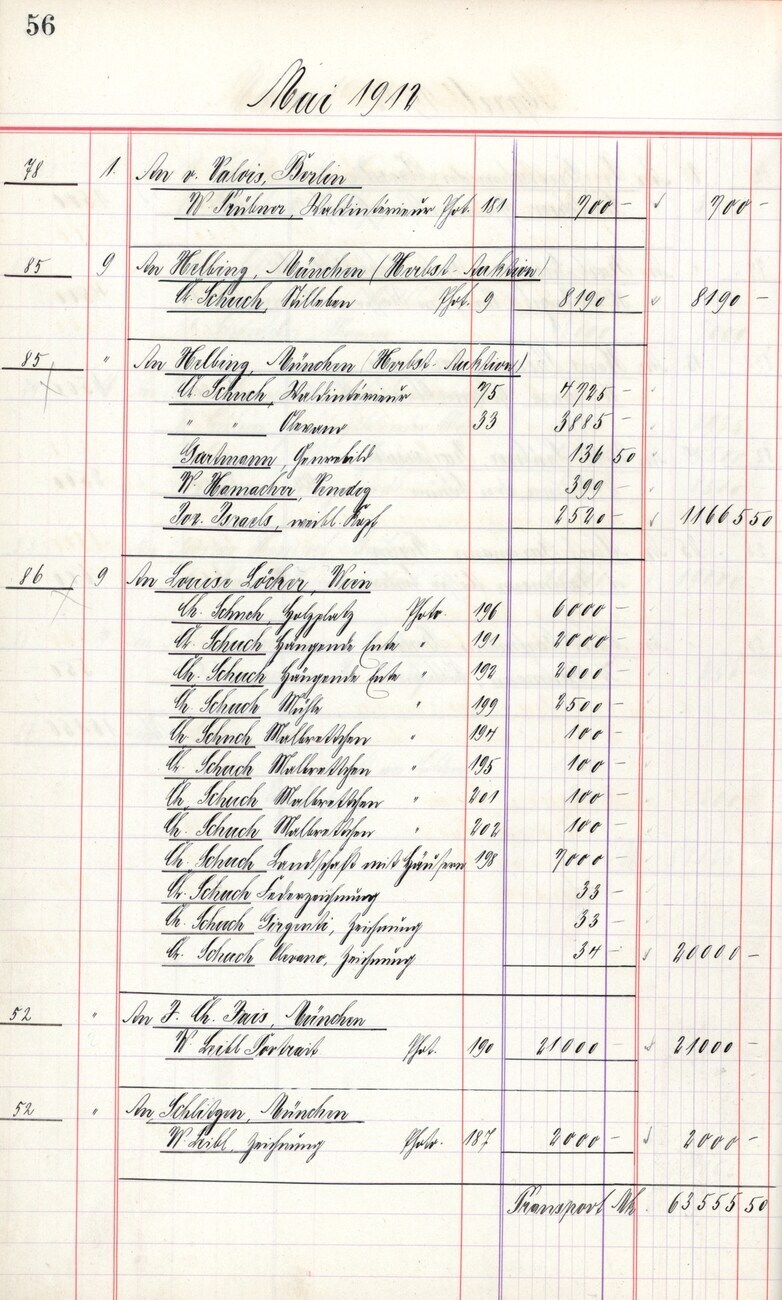 56
Mai 1912
78 1. An v. Valois, Berlin
W. Trübner, Waldinterieur Phot. 181 700 — 700 —
85 9 An Helbing, München (Herbst-Auktion)
Ch. Schuch, Stilleben Phot. 9 8190 — 8190 —
85 " An Helbing, München (Herbst-Auktion)
Ch. Schuch, Waldinterieur 75 4725 —
" " Olevano 33 3885 —
Gartmann, Genrebild 136 50
W. Hamacher, Venedig 399 —
Joz. Israels, weibl. Kopf 2520 — 11665 50
86 9 An Louise Löcker, Wien
Ch. Schuch, Holzplatz Photo. 196 6000 —
Ch. Schuch Hängende Ente " 191 2000 —
Ch. Schuch Hängende Ente " 192 2000 —
Ch. Schuch Mühle " 199 2500 —
Ch. Schuch Malbrettchen " 194 100 —
Ch. Schuch Malbrettchen " 195 100 —
Ch. Schuch Malbrettchen " 201 100 —
Ch. Schuch Malbrettchen " 202 100 —
Ch. Schuch Landschaft mit Häusern 198 7000 —
Ch. Schuch Federzeichnung 33 —
Ch. Schuch Girgenti, Zeichnung 33 —
Ch. Schuch Olevano, Zeichnung 34 — 20000 —
52 " An F. Ch. Fais, München
W. Leibl Portrait Phot. 190 21000 — 21000 —
52 " An Schlitgen, München
W. Leibl, Zeichnung Photo. 187 2000 — 2000 —
Transport Mk. 63555 50